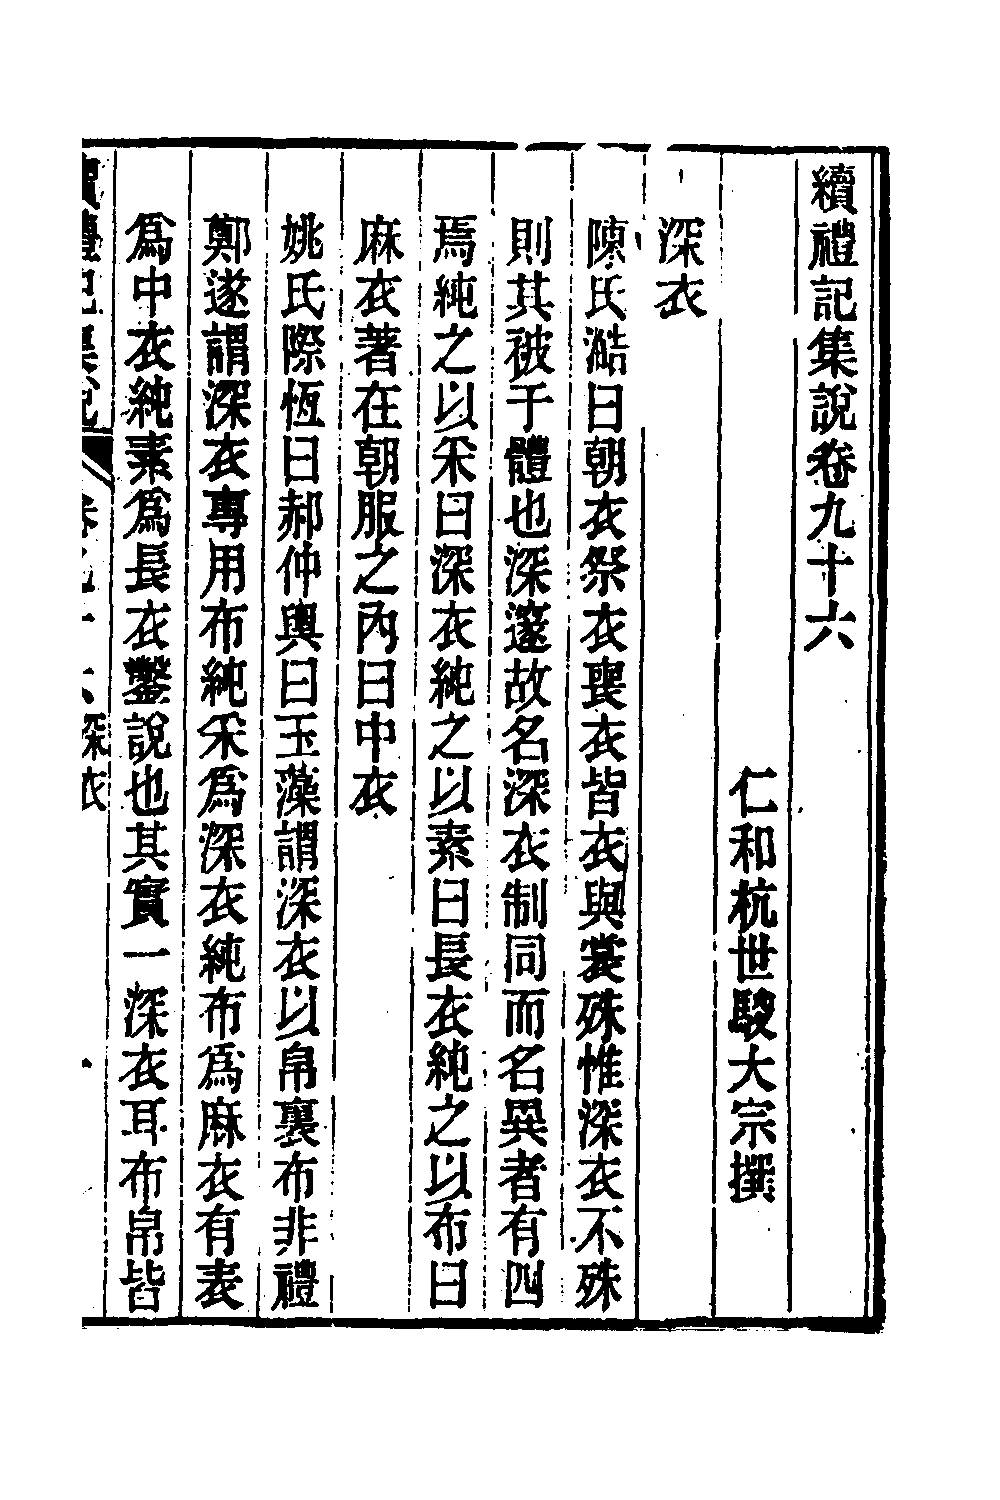 續禮記集說卷九十六
仁和杭世駿大宗撰
深衣
陳氏澔曰朝衣祭衣喪衣皆衣與裳殊惟深衣不殊
則其被于體也深邃故名深衣制同而名異者有四
焉純之以采曰深衣純之以素曰長衣純之以布曰
麻衣著在朝服之內曰中衣
姚氏際恆曰郝仲輿曰玉藻謂深衣以帛裏布非禮
鄭遂謂深衣專用布純采爲深衣純布爲麻衣有表
爲中衣純素爲長衣鑿說也其實一深衣耳布帛皆
續禮記集說 卷九十六 深衣